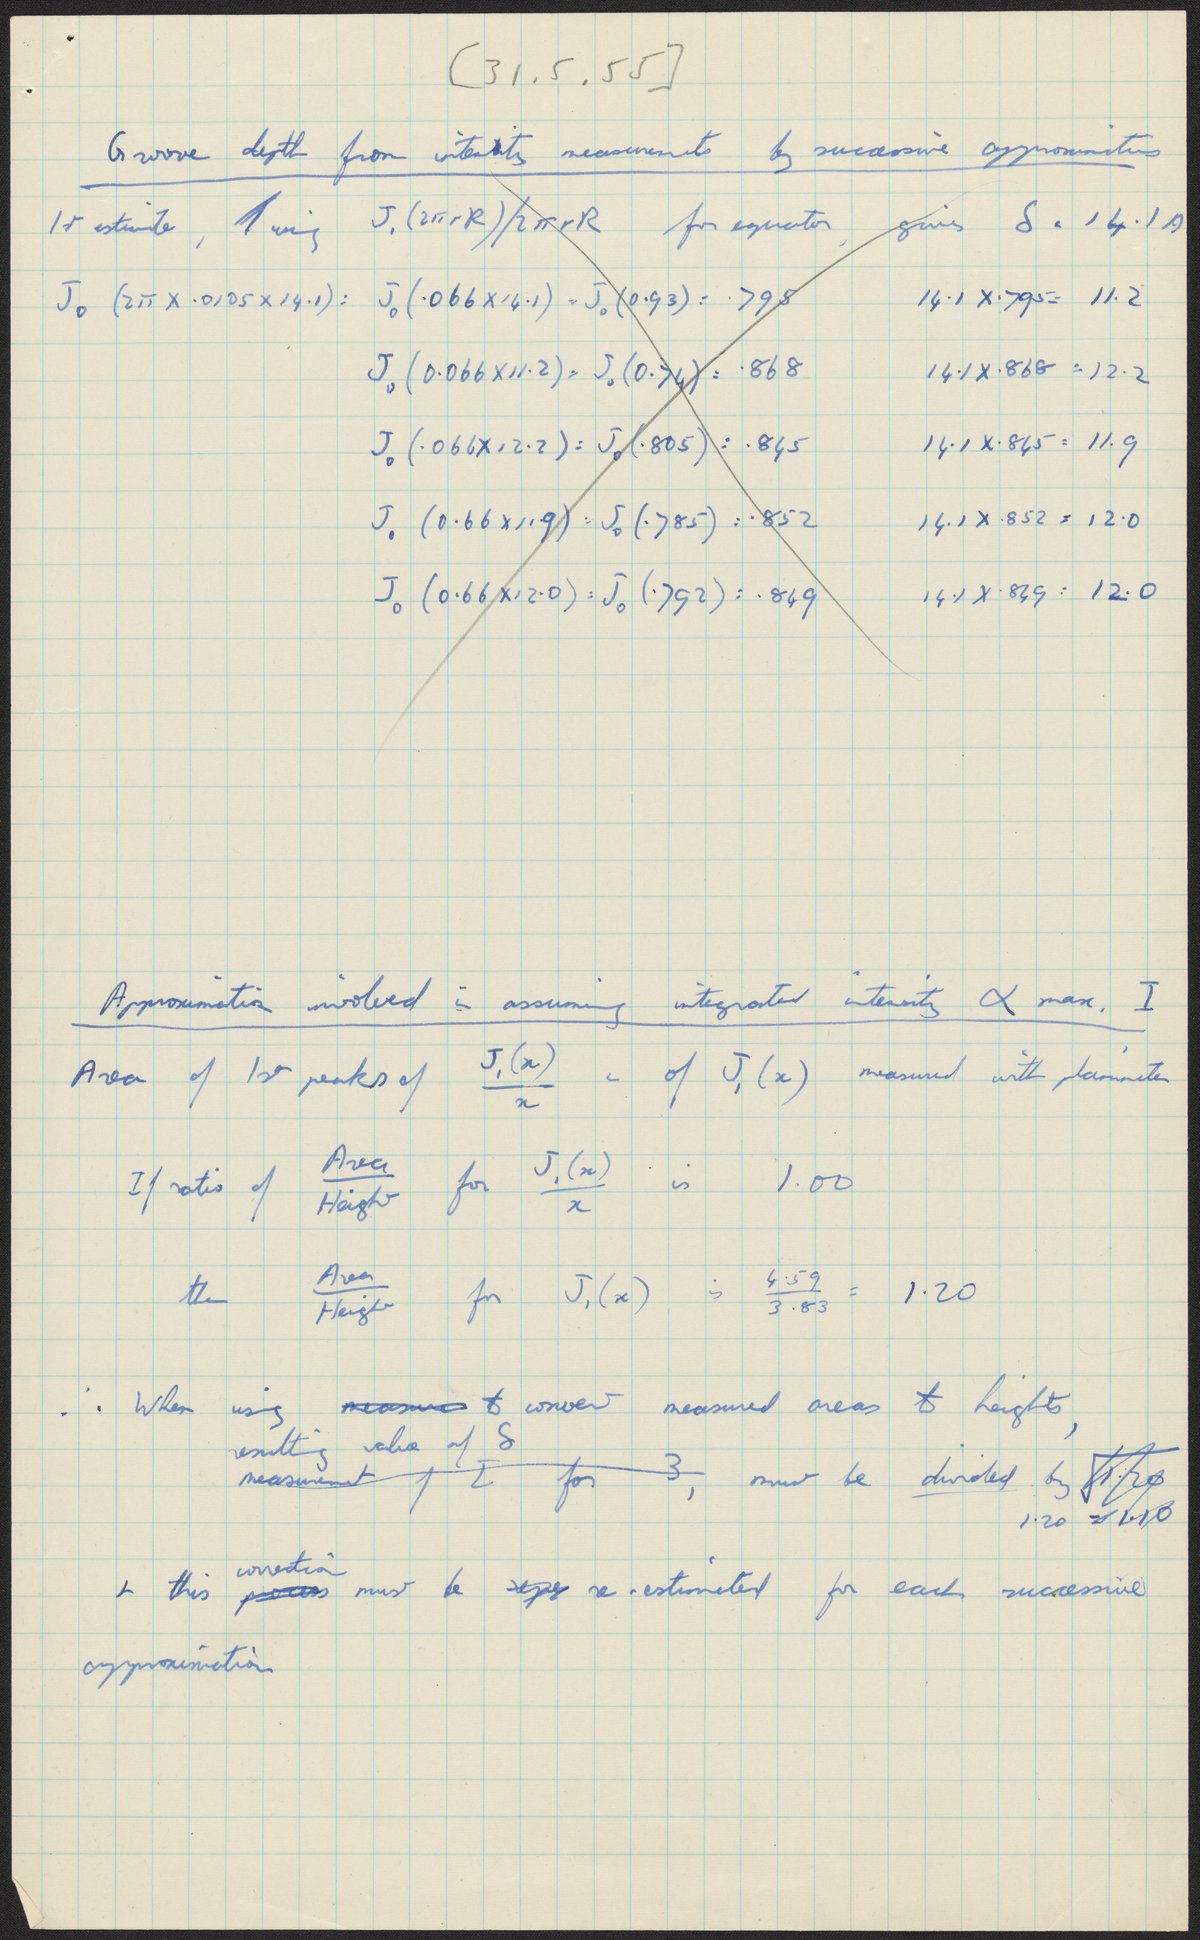 [31.5.55]
Groove depth from intensity measurements by successive approximations
1st estimate, using J₁(2πrR)/2πrR for equator, gives δ = 14.1A
J₀ (2π × .0105 × 14.1) = J₀(.066 × 14.1) = J₀(0.93) = .795 14.1 × .795 = 11.2
J₀(0.066 × 11.2) = J₀(0.74) = .868 14.1 × .868 = 12.2
J₀(.066 × 12.2) = J₀(.805) = .845 14.1 × .845 = 11.9
J₀ (0.66 × 11.9) = J₀(.785) = .852 14.1 × .852 = 12.0
J₀ (0.66 × 12.0) = J₀(.792) = .849 14.1 × .849 = 12.0
Approximation involved in assuming integrated intensity ∝ max. I
Area of 1st peaks of J₁(x)/x & of J₁(x) measured with planimeter
If ratio of Area/Height for J₁(x)/x is 1.00
then Area/Height for J₁(x) is 4.59/3.83 = 1.20
∴ When using measures to convert measured areas to heights,
resulting value of δ
measurement of I for 3, must be divided by √1.20
1.20 = 1.10
& this correction
process must be re-estimated for each successive
approximation